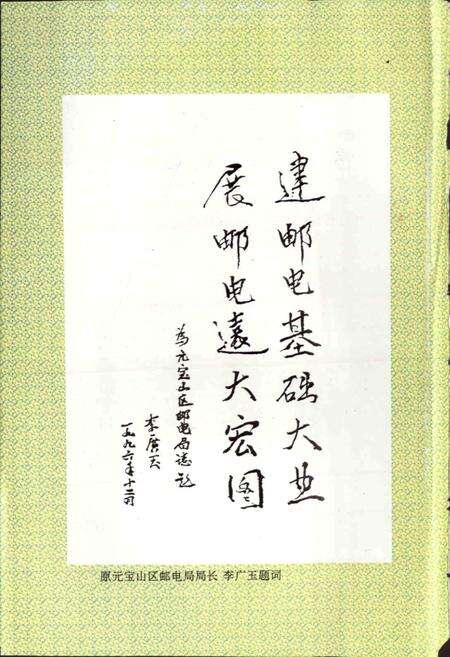 建邮电基础大业
展邮电遠大宏图
为元宝山区邮电局志题
李广玉
一九九六年十二月
原元宝山区邮电局局长 李广玉题词